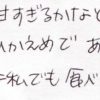 甘すぎるかなと
ひかえめで あ
私でも食べ